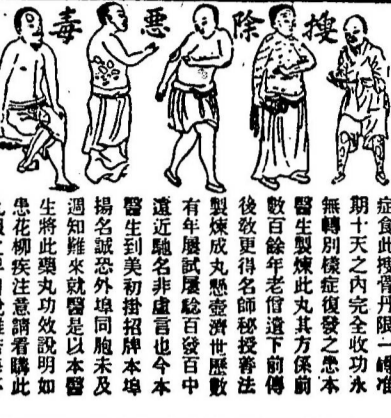 搜除惡毒
症食此搜骨丹限一准
期十天之內完全收功永
無轉別樣症復發之患本
醫生製煉此丸其方係前
數百餘年老僧遺下前傳
後敎更得名師秘授善法
製煉成丸懸壺濟世歷數
有年屢試屢騐百發百中
遠近馳名非虛言也今本
醫生到美初掛招牌本埠
揚名誠恐外埠同胞未及
週知難來就醫是以本醫
生將此藥丸功效說明如
患花柳疾注意請看購此